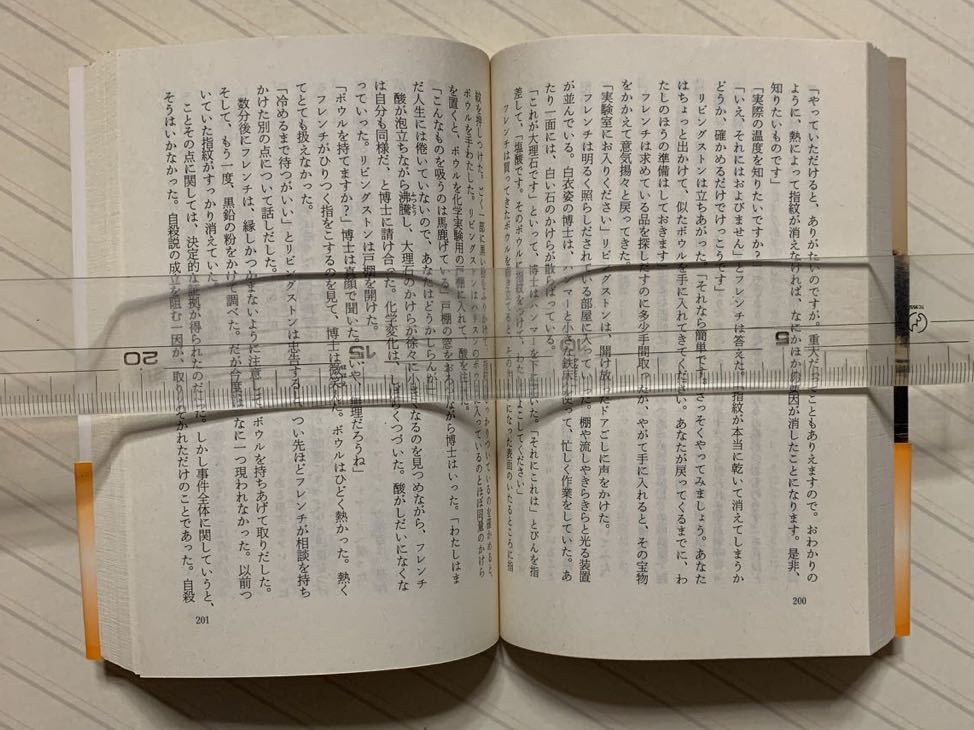 「やっていただけると、ありがたいのですが。重大だってこともありえますので。おわかりの
ように、熱によって指紋が消えなければ、なにかほかの要因が消したことになります。是非、
知りたいものです」
「実際の温度を知りたいですか？」
「いえ、それにはおよびません」とフレンチは答えた。「指紋が本当に乾いて消えてしまうか
どうか、確かめるだけでけっこうです」
リビングストンは立ちあがった。「それなら簡単です。さっそくやってみましょう。あなた
はちょっと出かけて、似たボウルを手に入れてきてください。あなたが戻ってくるまでに、わ
たしのほうの準備はしておきます」
フレンチは求めている品を探しだすのに多少手間取ったが、やがて手に入れると、その宝物
をかかえて意気揚々と戻ってきた。
「実験室にお入りください」リビングストンは、開け放したドアごしに声をかけた。
フレンチは明るく照らしだされている部屋に入っていった。棚や流しやきらきらと光る装置
が並んでいる。白衣姿の博士は、ハンマーと小さな鉄床を使って、忙しく作業をしていた。あ
たり一面には、白い石のかけらが散らばっている。
「これが大理石です」といって、博士はハンマーを下に置いた。「それにこれは」とびんを指
差して、「塩酸です。そのボウルに指紋をつけて、わたしによこしてください」
フレンチは買ってきたボウルを
200
紋を押しつけた。ごく一部に黒い粉をふりかけて、指紋が
ボウルを手わたした。リビングストンは
を置くと、ボウルを化学実験用の戸棚に入れて、酸を注いだ。
「こんなものを吸うのは馬鹿げている」戸棚の窓をおろしながら博士はいった。「わたしはま
だ人生には倦いていないので、あなたはどうかしらんが」
酸が泡立ちながら沸騰し、大理石のかけらが徐々に小さくなるのを見つめながら、フレンチ
は自分も同様だ、と博士に請け合った。化学変化は、しばらくつづいた。酸がしだいになくな
っていった。リビングストンは戸棚を開けた。
「ボウルを持てますか？」博士は真顔で聞いた。「いや、無理だろうね」
フレンチがひりつく指をこするのを見て、博士は微笑んだ。ボウルはひどく熱かった。熱く
てとても扱えなかった。
「冷めるまで待つがいい」とリビングストンは忠告すると、つい先ほどフレンチが相談を持ち
かけた別の点について話しだした。
数分後にフレンチは、縁しかつかまないように注意して、ボウルを持ちあげて取りだした。
そして、もう一度、黒鉛の粉をかけて調べた。だが今度はなに一つ現われなかった。以前つ
いていた指紋がすっかり消えていた。
ことその点に関しては、決定的な証拠が得られたのだった。しかし事件全体に関していうと、
そうはいかなかった。自殺説の成立を阻む一因が、取りのぞかれただけのことであった。自殺
201
5
10
15
20